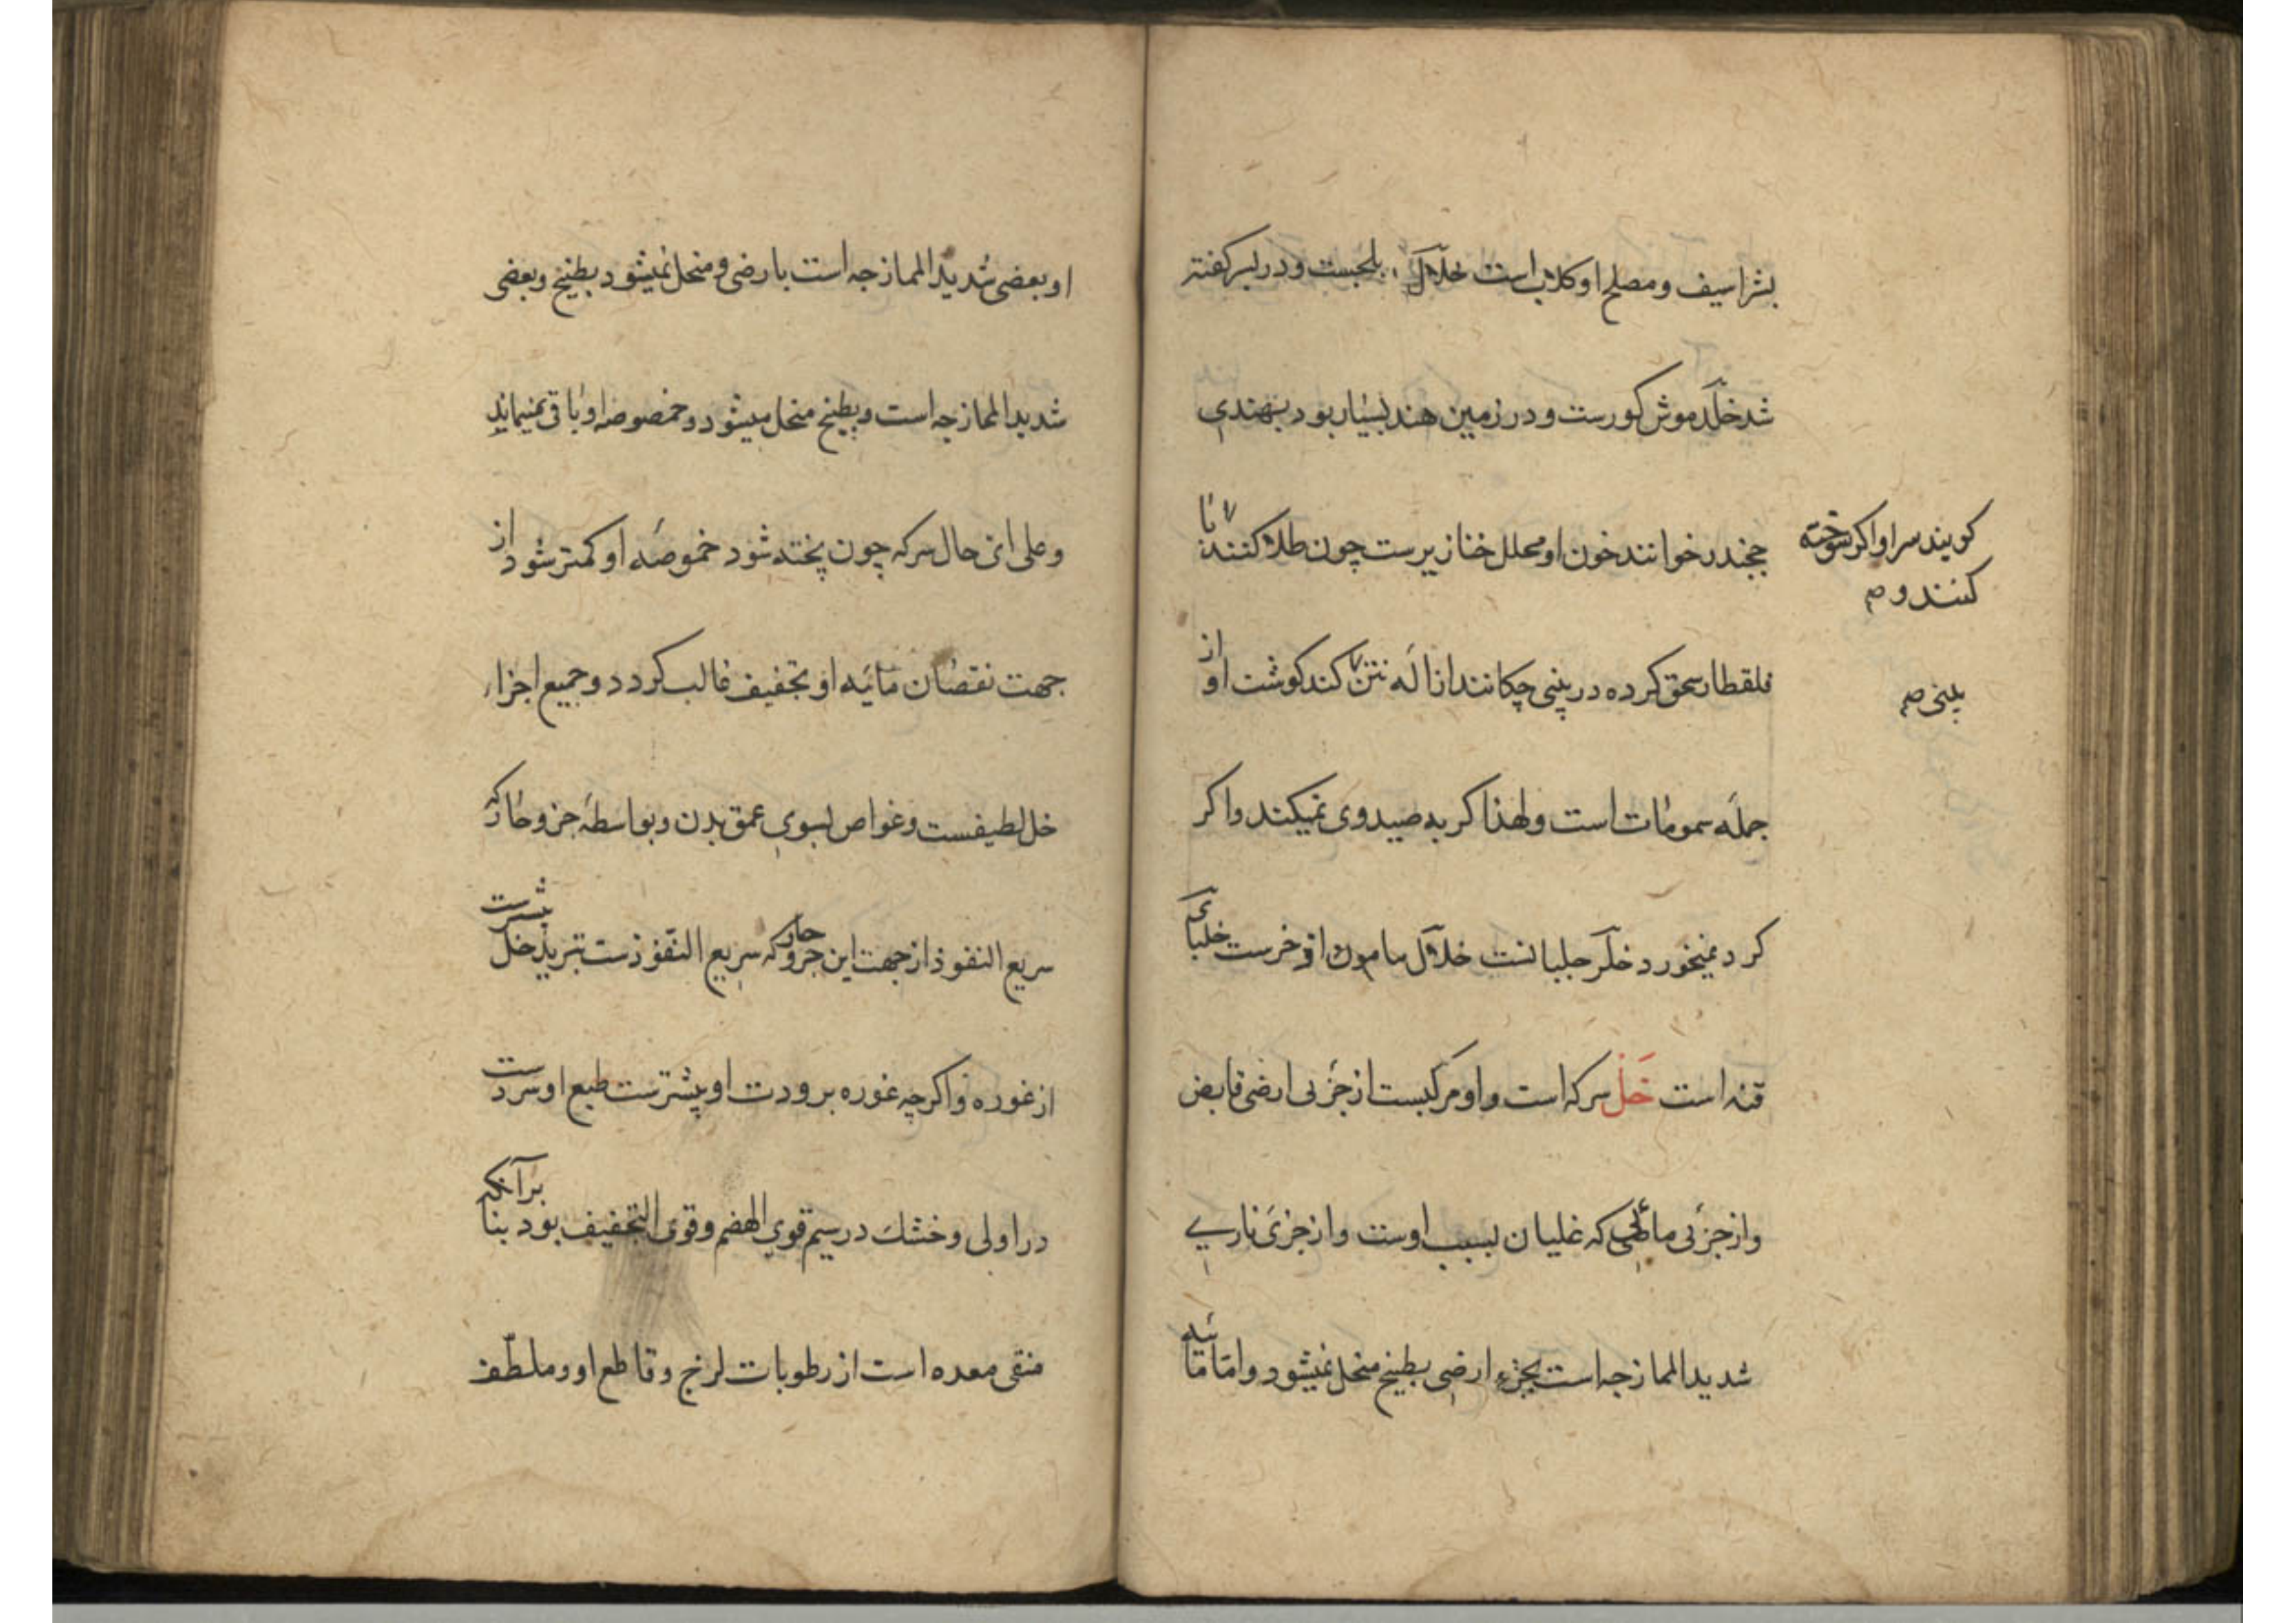 بشراسیف و مصلح او کلاب است خلّال بلجست و در لبر کفته
شد خلّد موش کورست و در زمین هند بسیار بود بهندی
ججندر خوانند خون او محلل خنازیرست چون طلا کنند با
کویند سر او اکر سوخته
کنند و صح
قلقطار سحق کرده در بینی چکانند ازالهٔ نتن کند کوشت او از
بینی صح
جملهٔ سمومات است و لهذا کربه صید وی نمیکند و اکر
کرد نمیخورد خلّر جلبانست خلّال مامون اذخرست خلبانی
قنه است خَلّ سرکه است و او مرکبست از جزئی ارضی قابض
و از جزئی مائی که غلیان بسبب اوست و از جزئی ناری
شدید الممازجه است بجزء ارضی بطبخ منحل نمیشود و اما مائیه
او بعضی شدید الممازجه است بارضی و منحل نمیشود بطبخ و بعضی
شدید الممازجه است و بطبخ منحل میشود و خصوصه او باقی نمیماند
و علی ای حال سرکه چون پخته شود خموصهٔ او کمتر شود از
جهت نقصان مائیه او تجفیف غالب کردد و جمیع اجزاء
خل لطیفست و غواص بسوی عمق بدن و بواسطهٔ جزو حار که
سریع النفوذ از جهت این جزو حار که سریع النفوذست تبرید خل بیشترست
از غوره و اکرچه غوره برودت او بیشترست طبع او سردست
در اولی و خشک در سیم قوی الهضم و قوی التجفیف بود بنا برآنکه
منقی معده است از رطوبات لزج و قاطع او و ملطّف